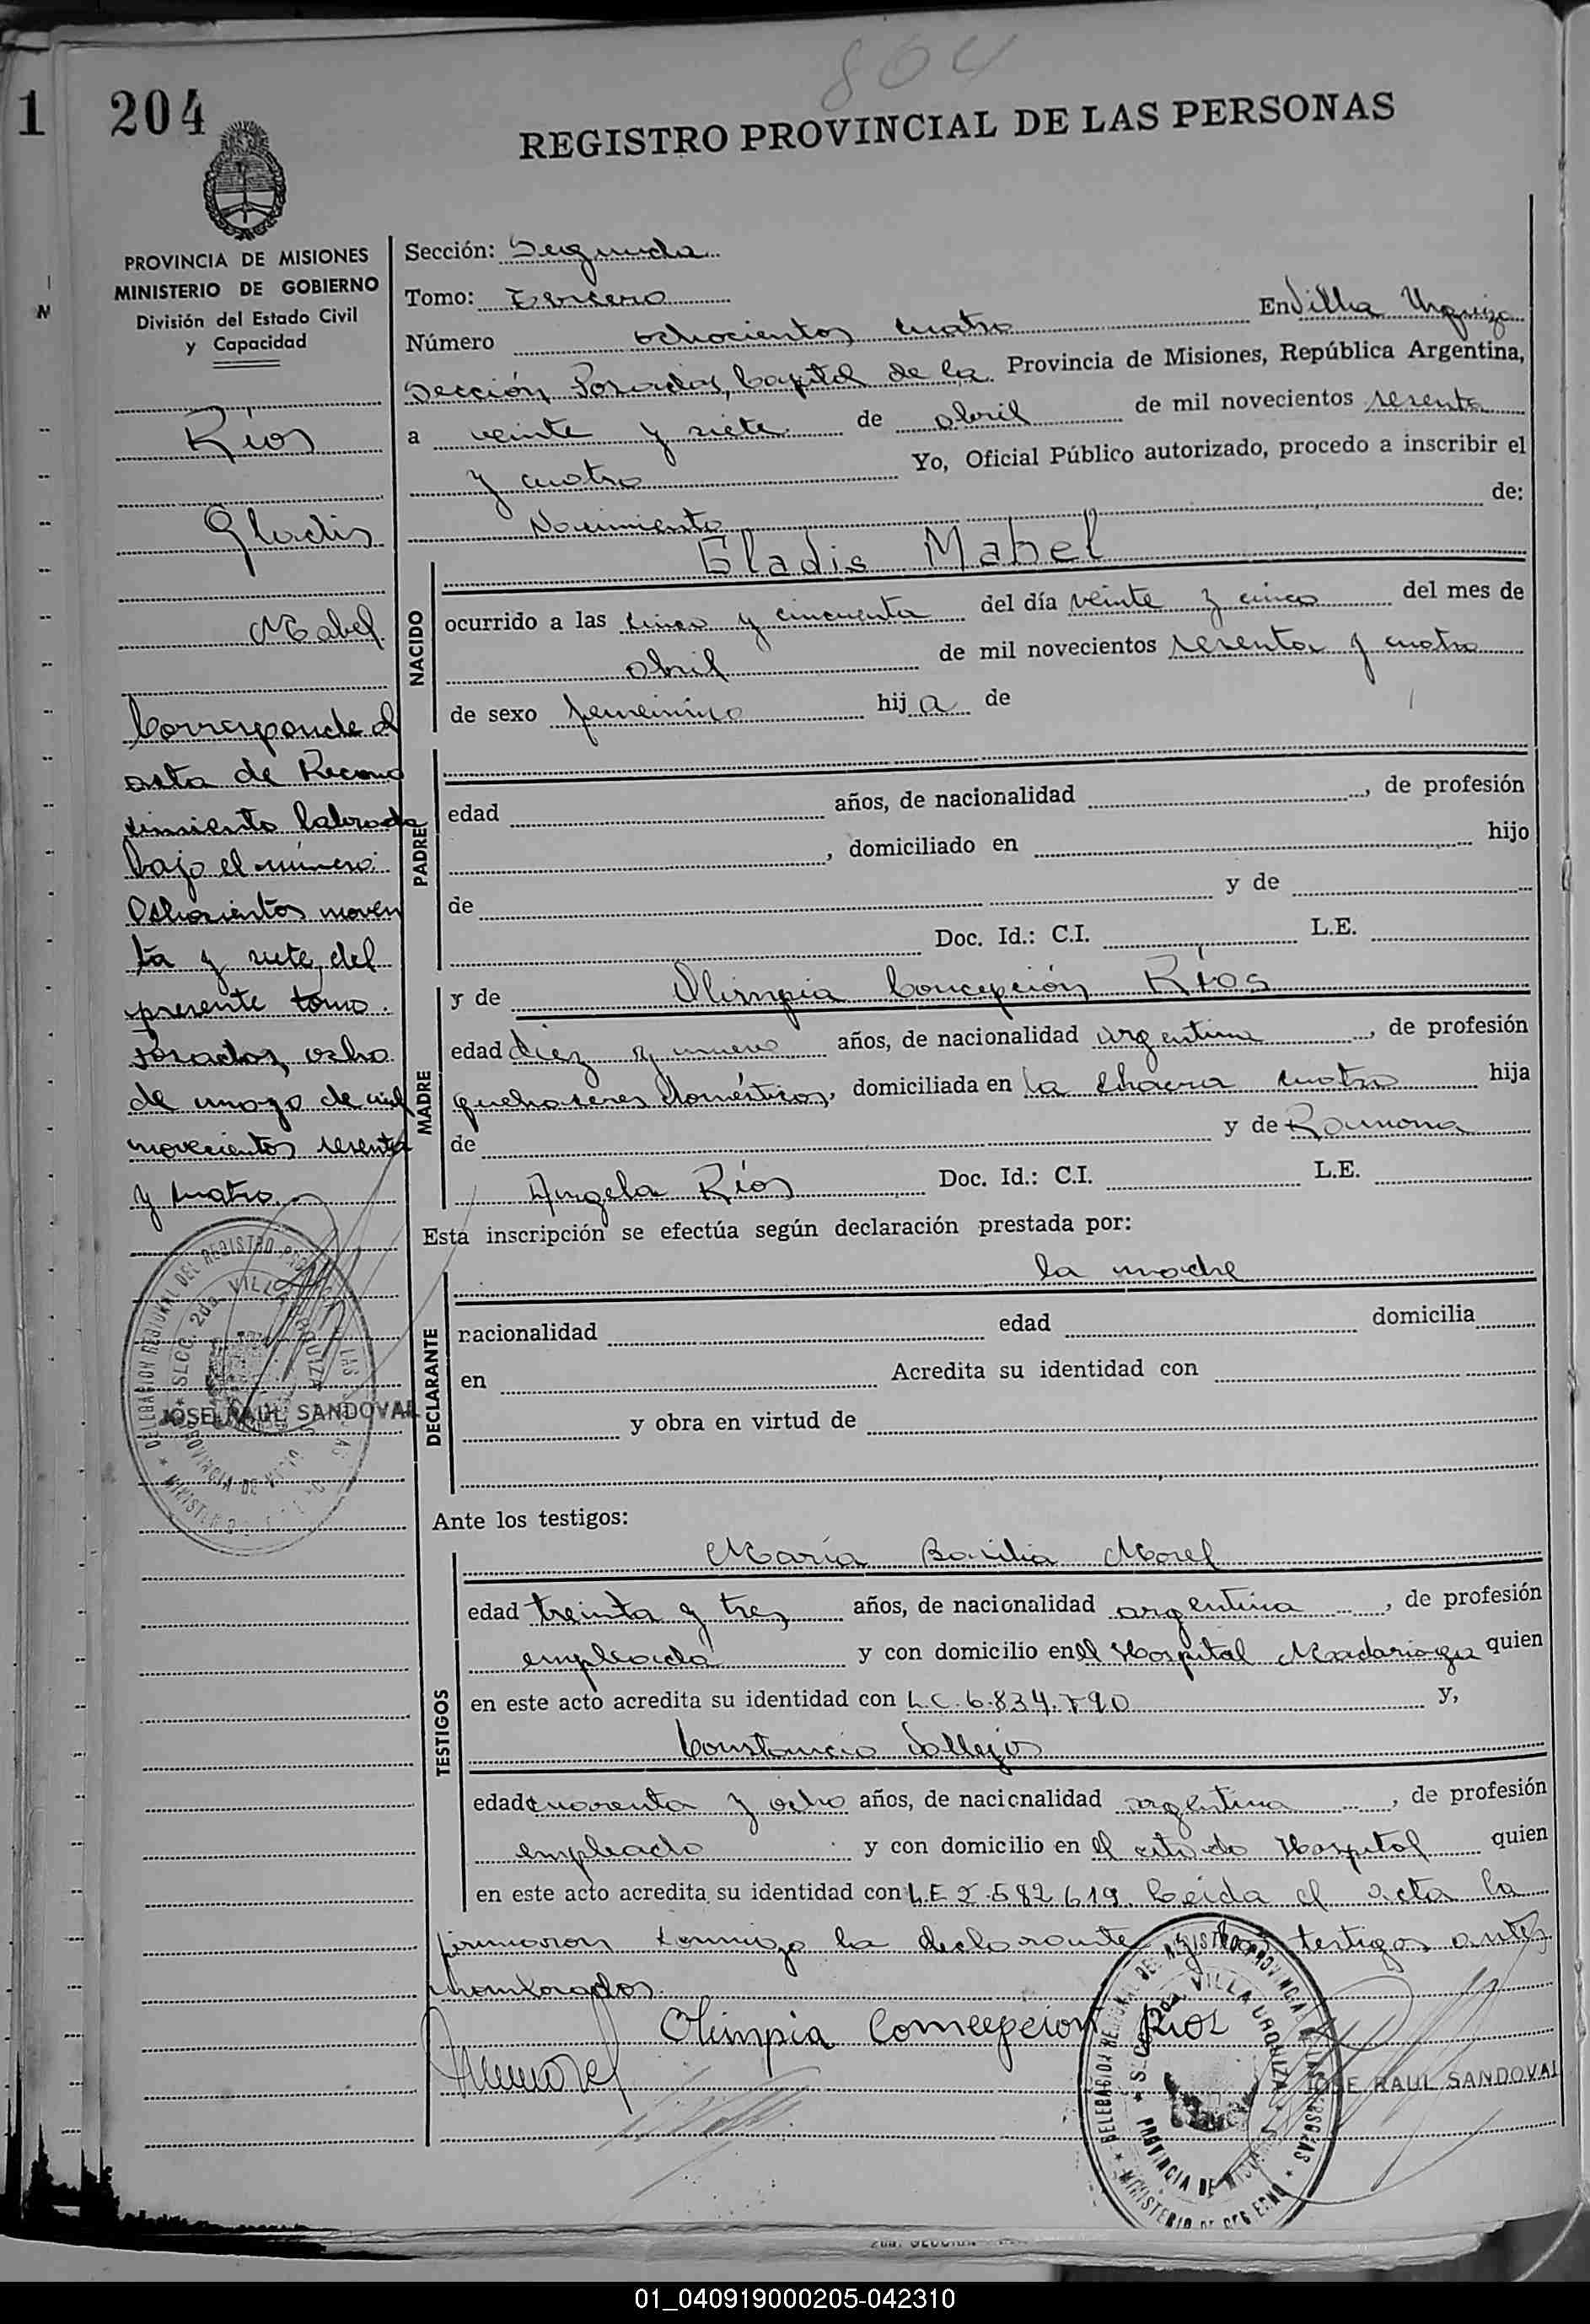 804
1 204
REGISTRO PROVINCIAL DE LAS PERSONAS
PROVINCIA DE MISIONES
MINISTERIO DE GOBIERNO
División del Estado Civil
y Capacidad
Ríos
Gladis
Mabel
Corresponde al
acta de Recono
cimiento labrada
bajo el número:
Ochocientos noven
ta y siete, del
presente tomo.
Posadas, ocho
de mayo de mil
novecientos sesenta
y cuatro.
DELEGACION REGIONAL DEL REGISTRO PROVINCIAL DE LAS PERSONAS
SECC. 2da. VILLA URQUIZA
PROVINCIA DE MISIONES
JOSE RAUL SANDOVAL
Sección: Segunda
Tomo: Tercero
Número ochocientos cuatro En Villa Urquiza
Sección Posadas, Capital de la Provincia de Misiones, República Argentina,
a veinte y siete de abril de mil novecientos sesenta
y cuatro Yo, Oficial Público autorizado, procedo a inscribir el
Nacimiento de:
NACIDO
Gladis Mabel
ocurrido a las cinco y cincuenta del día veinte y cinco del mes de
abril de mil novecientos sesenta y cuatro
de sexo femenino hij a de
PADRE
edad años, de nacionalidad , de profesión
, domiciliado en hijo
de y de
Doc. Id.: C.I. L.E.
MADRE
y de Olimpia Concepción Ríos
edad diez y nueve años, de nacionalidad argentina , de profesión
quehaceres domésticos, domiciliada en la chacra cuatro hija
de y de Ramona
Angela Ríos Doc. Id.: C.I. L.E.
Esta inscripción se efectúa según declaración prestada por:
la madre
DECLARANTE
nacionalidad edad domicilia
en Acredita su identidad con
y obra en virtud de
Ante los testigos:
TESTIGOS
María Basilia Morel
edad treinta y tres años, de nacionalidad argentina , de profesión
empleada y con domicilio en el Hospital Madariaga quien
en este acto acredita su identidad con L.C. 6.834.790 y,
Constancio Vallejos
edad cuarenta y ocho años, de nacionalidad argentina , de profesión
empleado y con domicilio en el citado Hospital quien
en este acto acredita su identidad con L.E 2.582.619. Leida el acta la
firmaron conmigo la declarante y los testigos antes
nombrados.
Olimpia Comcepcion Rios
DELEGACION REGIONAL DEL REGISTRO PROVINCIAL DE LAS PERSONAS
SECC. 2da. VILLA URQUIZA
PROVINCIA DE MISIONES
MINISTERIO DE GOBIERNO
JOSE RAUL SANDOVAL
01_040919000205-042310